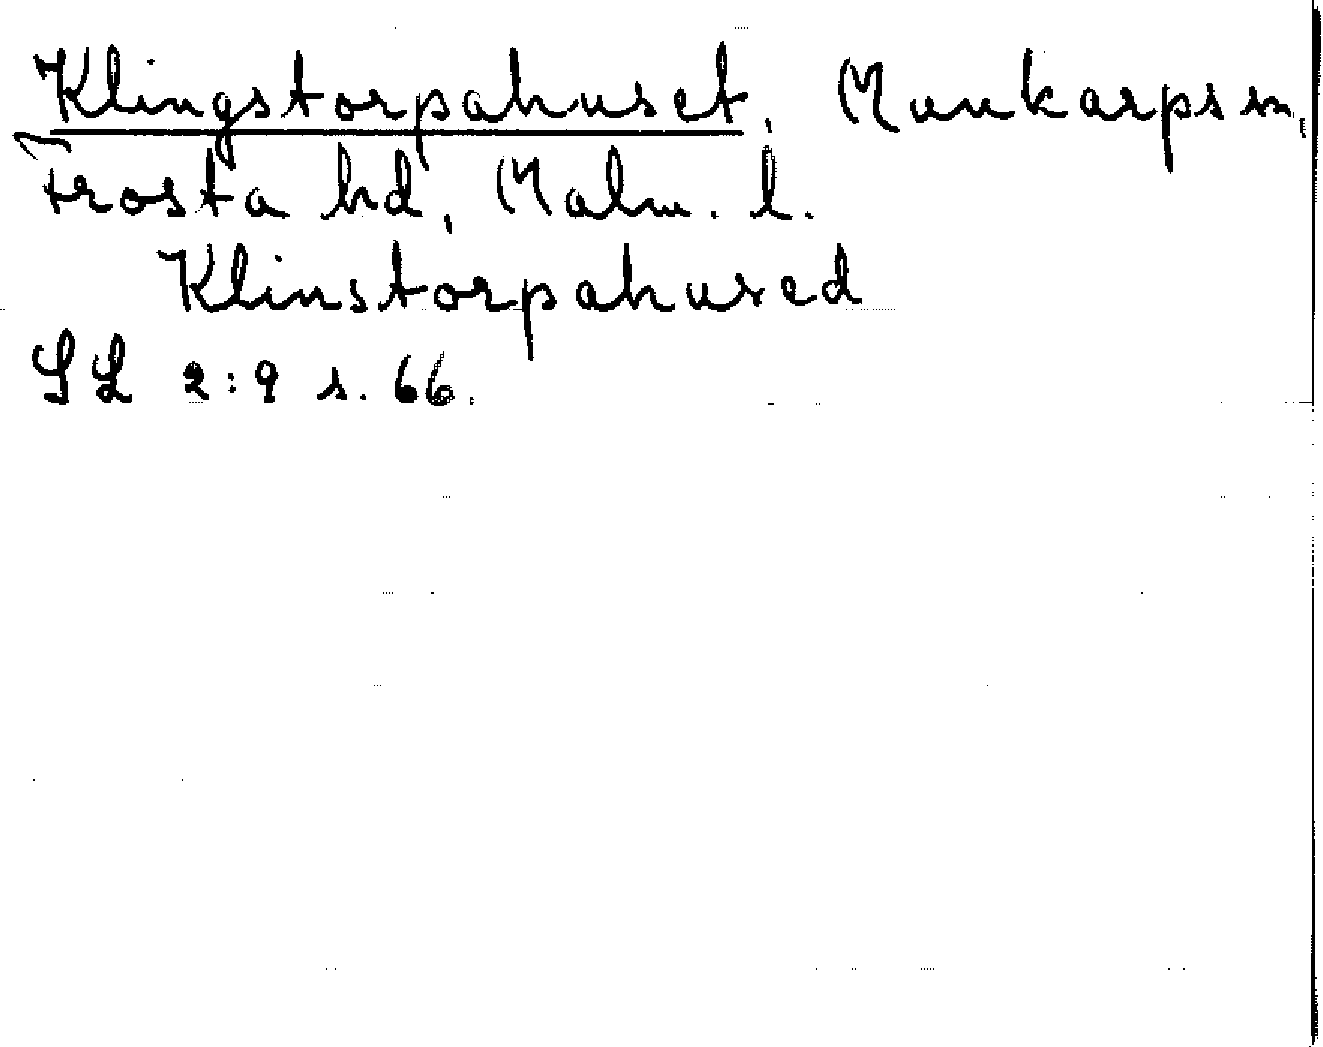 Klingstorpahuset, Munkarps sn,
Frosta hd, Malm. l.
Klinstorpahused
SL 2:9 s. 66.